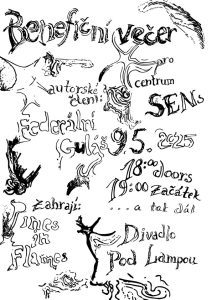 Benefiční večer
pro
centrum
SENS
autorské
čtení:
Federální
Guláš
9.5.2025
18:00 doors
19:00 začátek
... a tak dál
zahrají:
Pines
in
Flames
Divadlo
Pod Lampou